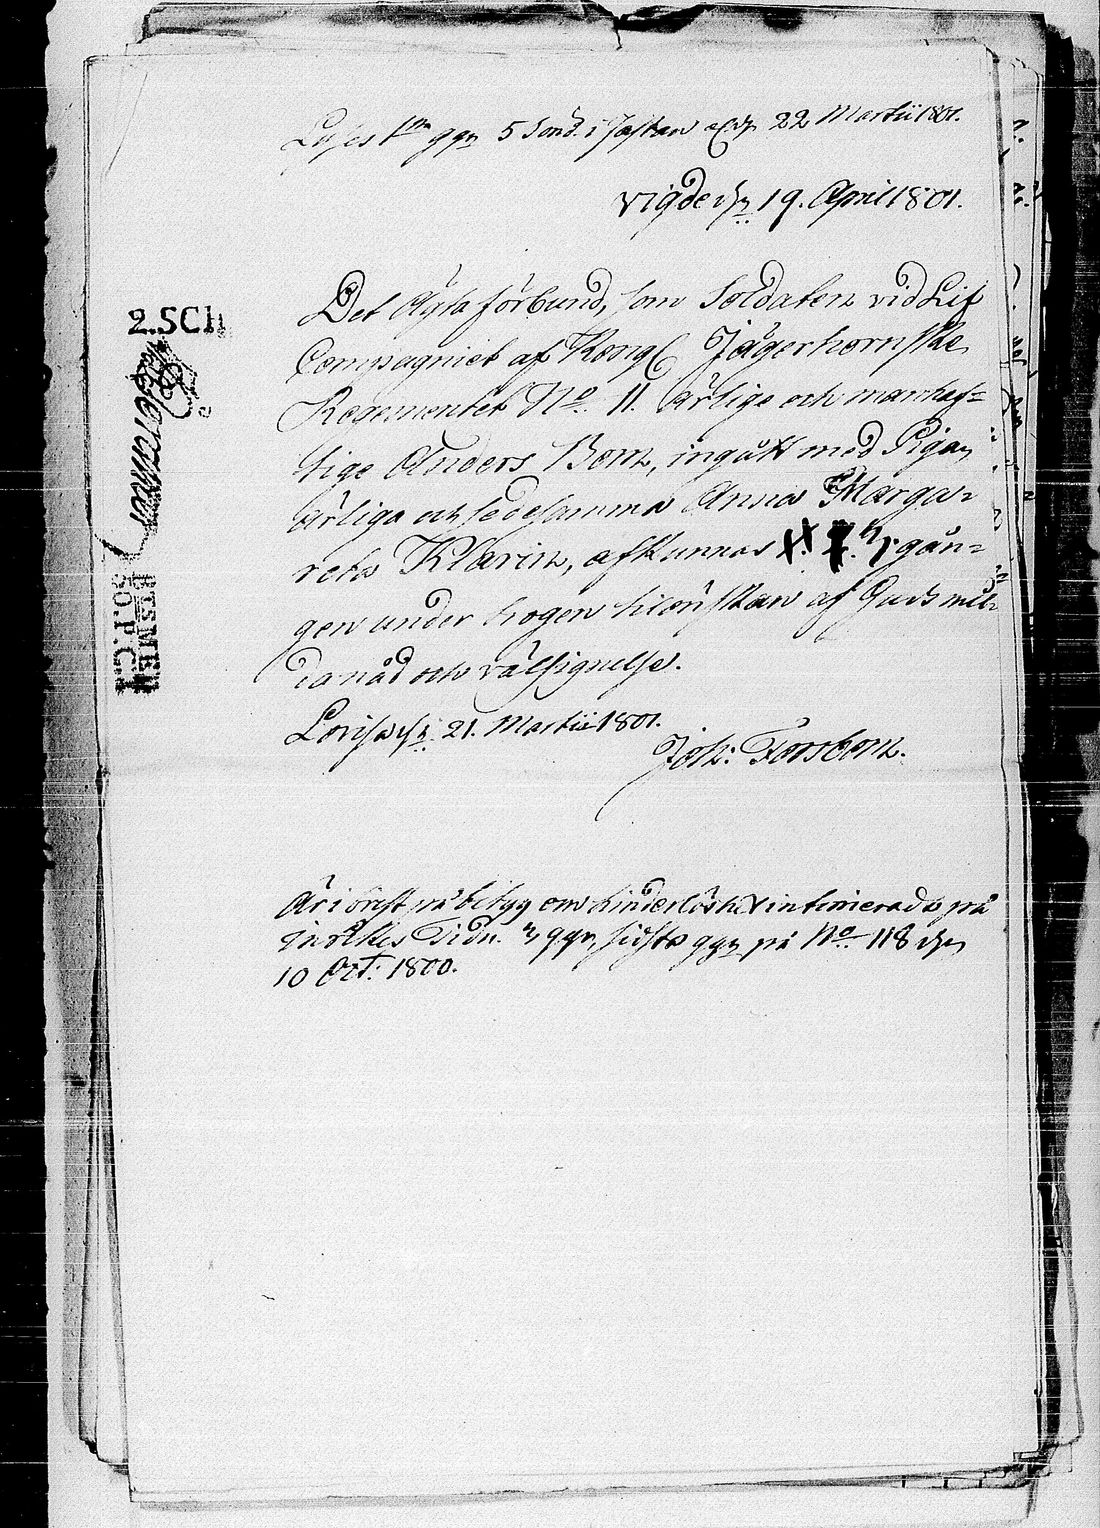 Lyses 1sta ggn 5 Sönd. i Fastan 22 Martii 1801.
Vigde d. 19. April 1801.
Det Ägta förbund, som Soldaten vid Lif
Compagniet af Kongl Jägerhornske
Regementet No. 11. ärlige och manhaf=
tige Anders Born, ingått med Pigan
ärliga och sedesamma Anna Marga=
reta Klarin, afkunnas gån=
gen under trogen tilönskan af Guds mil=
da nåd och välsignelse.
Lovisa d. 21. Martii 1801.
Joh: Forsbom.
2.SCH
Är i brist på betyg om hinderlöshet intimerad på
Inrikes Tidn. 3 ggr, sidsta ggn på No. 118 den
10 Oct: 1800.